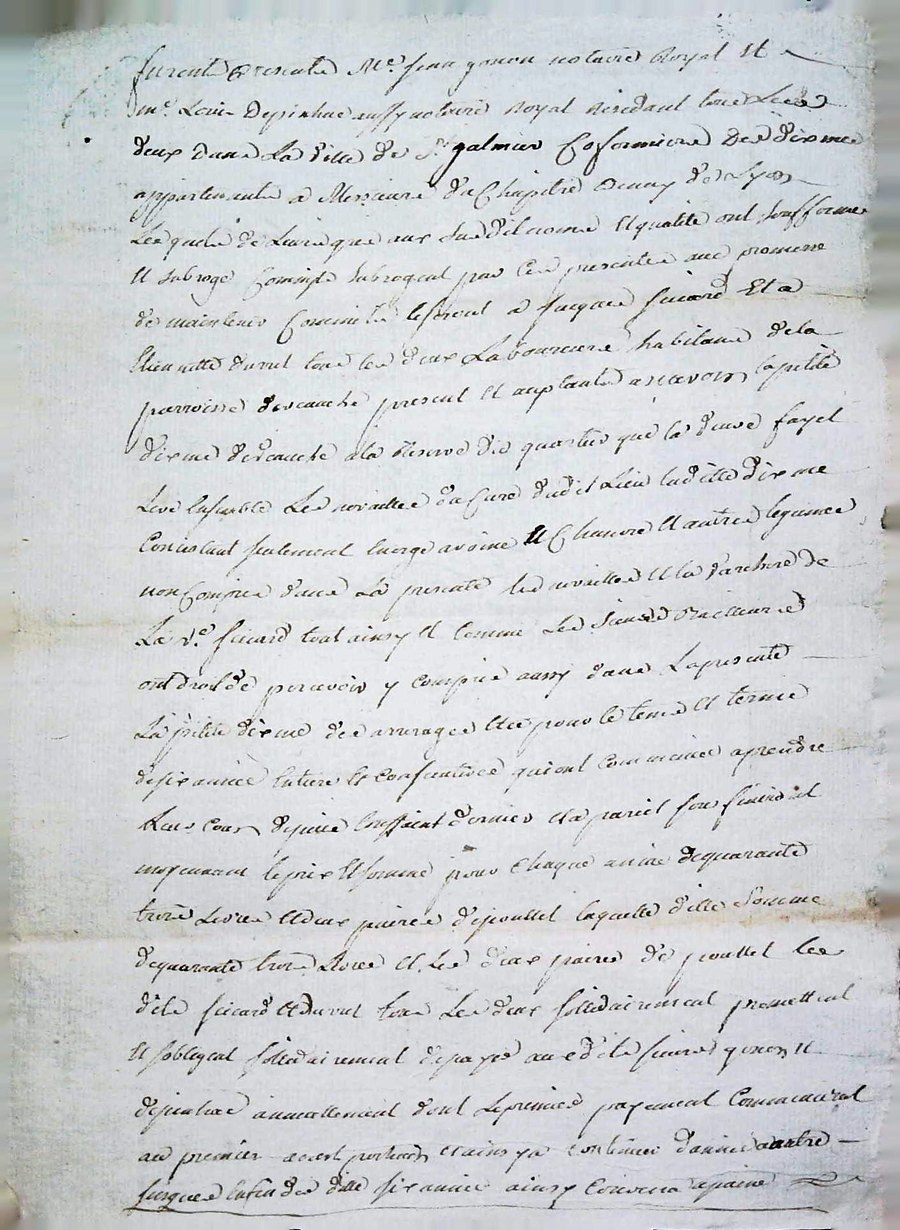 furent presents Me. Jean gonon notaire Royal Et
me. Louis Depinhac aussy notaire Royal Residant tous Les
deux dans La Ville de St galmier Cofermiers Des dixmes
appartenants a Messieurs du Chapitre Denay de Lyon
Lesquels de Leur gre aux susdit noms Et qualité ont sousferme
Et subrogé Comme subrogent par Ces presentes avec promesse
de maintenir a Jacques Sicard Et a
Etiennette duvul tous les deux Laboureurs habitans de la
parroisse present Et acceptants ascavoir la petite
dixme a la Reserve du quartier que la Veuve fayel
Leve Ensemble Les novailles du Cure dudit Lieu laditte dixme
Consistant seulement En orge avoine Et Chanvre Et autres legumes
non Compris dans La presente les novailles Et la de
La Ve. Sicard tout ainsy Et comme Les Sieurs
ont droit de percevoir y compris aussy dans La presente
La petite dixme des Et ce pour le tems Et terme
de six années Entiere Et Consecutives qui ont Commencé a prendre
Leur cours depuis dernier Et a pareil jour finiront
moyennant le prix Et somme pour chaque année de quarante
trois Livres Et deux paires de poullet laquelle ditte Somme
de quarante trois Livres Et Les deux paires de poullet les
dits sicard Et duvul tous Les deux sollidairement promettent
Et sobligent sollidairement de payer aux dits sieurs gonon Et
depinhac annuellement dont Le premier payement Commencera
au premier aoust prochain Et ainsy a continuer dannée a autre
jusques En fin des ditte six année ainsy Convenu a paine